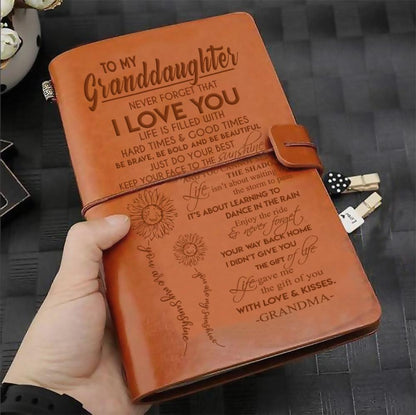 TO MY
Granddaughter
NEVER FORGET THAT
I LOVE YOU
LIFE IS FILLED WITH
HARD TIMES & GOOD TIMES
BE BRAVE, BE BOLD AND BE BEAUTIFUL
JUST DO YOUR BEST
KEEP YOUR FACE TO THE sunshine
THE SHADO
Life isn't about waiting
the storm to
IT'S ABOUT LEARNING TO
DANCE IN THE RAIN
Enjoy the ride
& never forget
YOUR WAY BACK HOME
I DIDN'T GIVE YOU
THE GIFT OF life
Life gave me
the gift of you
WITH LOVE & KISSES,
-GRANDMA-
you are my sunshine
you are my sunshine